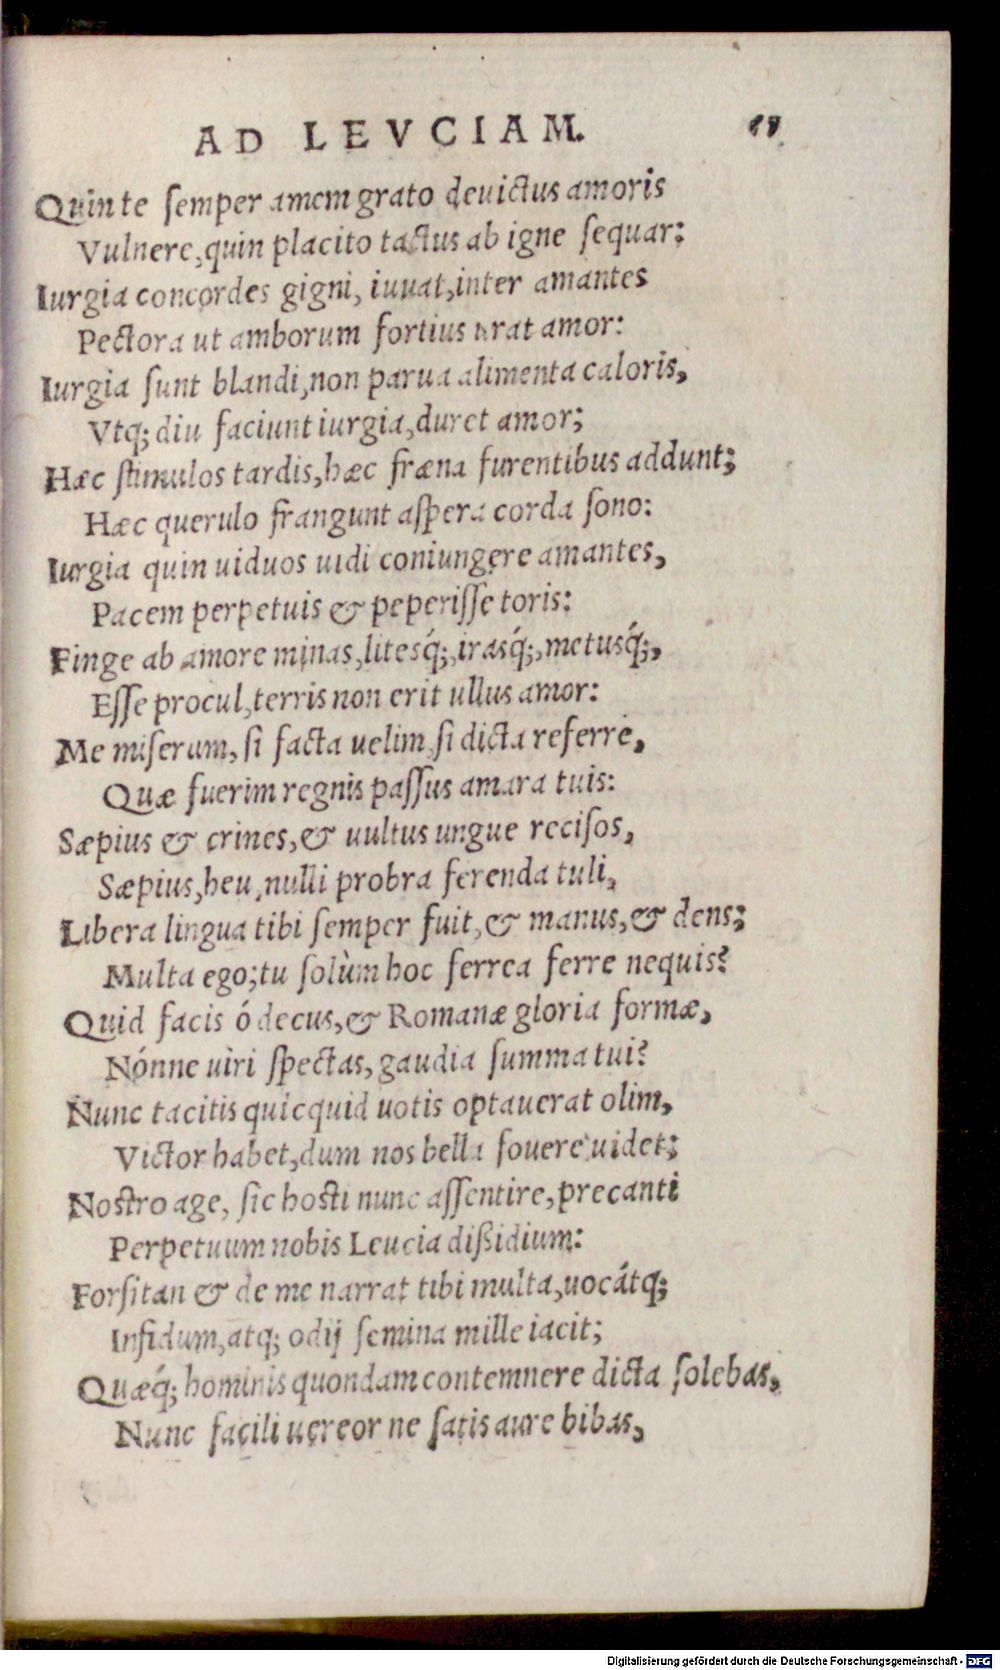 AD LEVCIAM.
Quin te ſemper amem grato deuictus amoris
Vulnere, quin placito tactus ab igne ſequar;
Iurgia concordes gigni, iuuat, inter amantes
Pectora ut amborum fortius urat amor:
Iurgia ſunt blandi, non parua alimenta caloris,
Vtq; diu faciunt iurgia, duret amor;
Hæc ſtimulos tardis, hæc fræna furentibus addunt;
Hæc querulo frangunt aſpera corda ſono:
Iurgia quin uiduos uidi coniungere amantes,
Pacem perpetuis & peperiſſe toris:
Finge ab amore minas, litesq́;, irasq́;, metusq́;,
Eſſe procul, terris non erit ullus amor:
Me miſerum, ſi facta uelim, ſi dicta referre,
Quæ fuerim regnis paſſus amara tuis:
Sæpius & crines, & uultus ungue reciſos,
Sæpius, heu, nulli probra ferenda tuli,
Libera lingua tibi ſemper fuit, & manus, & dens;
Multa ego; tu ſolùm hoc ferrea ferre nequis?
Quid facis ó decus, & Romanæ gloria formæ,
Nónne uiri ſpectas, gaudia ſumma tui?
Nunc tacitis quicquid uotis optauerat olim,
Victor habet, dum nos bella fouere uidet;
Noſtro age, ſic hoſti nunc aſſentire, precanti
Perpetuum nobis Leucia diſsidium:
Forſitan & de me narrat tibi multa, uocátq;
Infidum, atq; odij ſemina mille iacit;
Quæq́; hominis quondam contemnere dicta ſolebas,
Nunc facili uereor ne ſatis aure bibas,
Digitalisierung gefördert durch die Deutsche Forschungsgemeinschaft - DFG